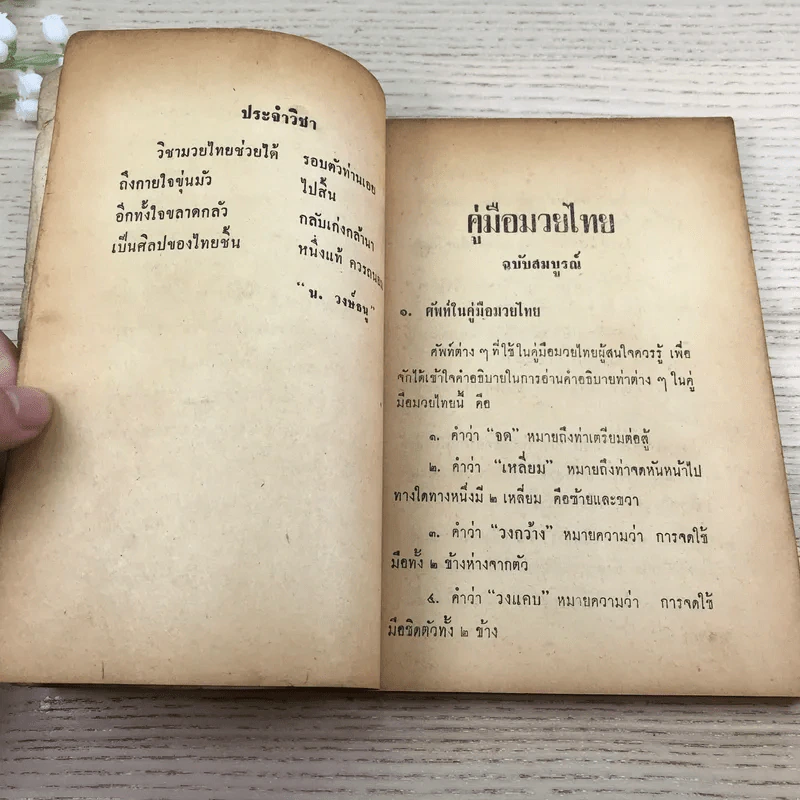 ประจำวิชา
วิชามวยไทยช่วยได้ รอบตัวท่านเอย
ถึงกายใจขุ่นมัว ไปสิ้น
อีกทั้งใจขลาดกลัว กลับเก่งกล้านา
เป็นศิลปของไทยชั้น หนึ่งแท้ ควรถนอม
“น. วงษ์ธนู”
คู่มือมวยไทย
ฉบับสมบูรณ์
๑. ศัพท์ในคู่มือมวยไทย
ศัพท์ต่าง ๆ ที่ใช้ในคู่มือมวยไทยผู้สนใจควรรู้ เพื่อ
จักได้เข้าใจคำอธิบายในการอ่านคำอธิบายท่าต่าง ๆ ในคู่
มือมวยไทยนี้ คือ
๑. คำว่า “จด” หมายถึงท่าเตรียมต่อสู้
๒. คำว่า “เหลี่ยม” หมายถึงท่าจดหันหน้าไป
ทางใดทางหนึ่งมี ๒ เหลี่ยม คือซ้ายและขวา
๓. คำว่า “วงกว้าง” หมายความว่า การจดใช้
มือทั้ง ๒ ข้างห่างจากตัว
๔. คำว่า “วงแคบ” หมายความว่า การจดใช้
มือชิดตัวทั้ง ๒ ข้าง